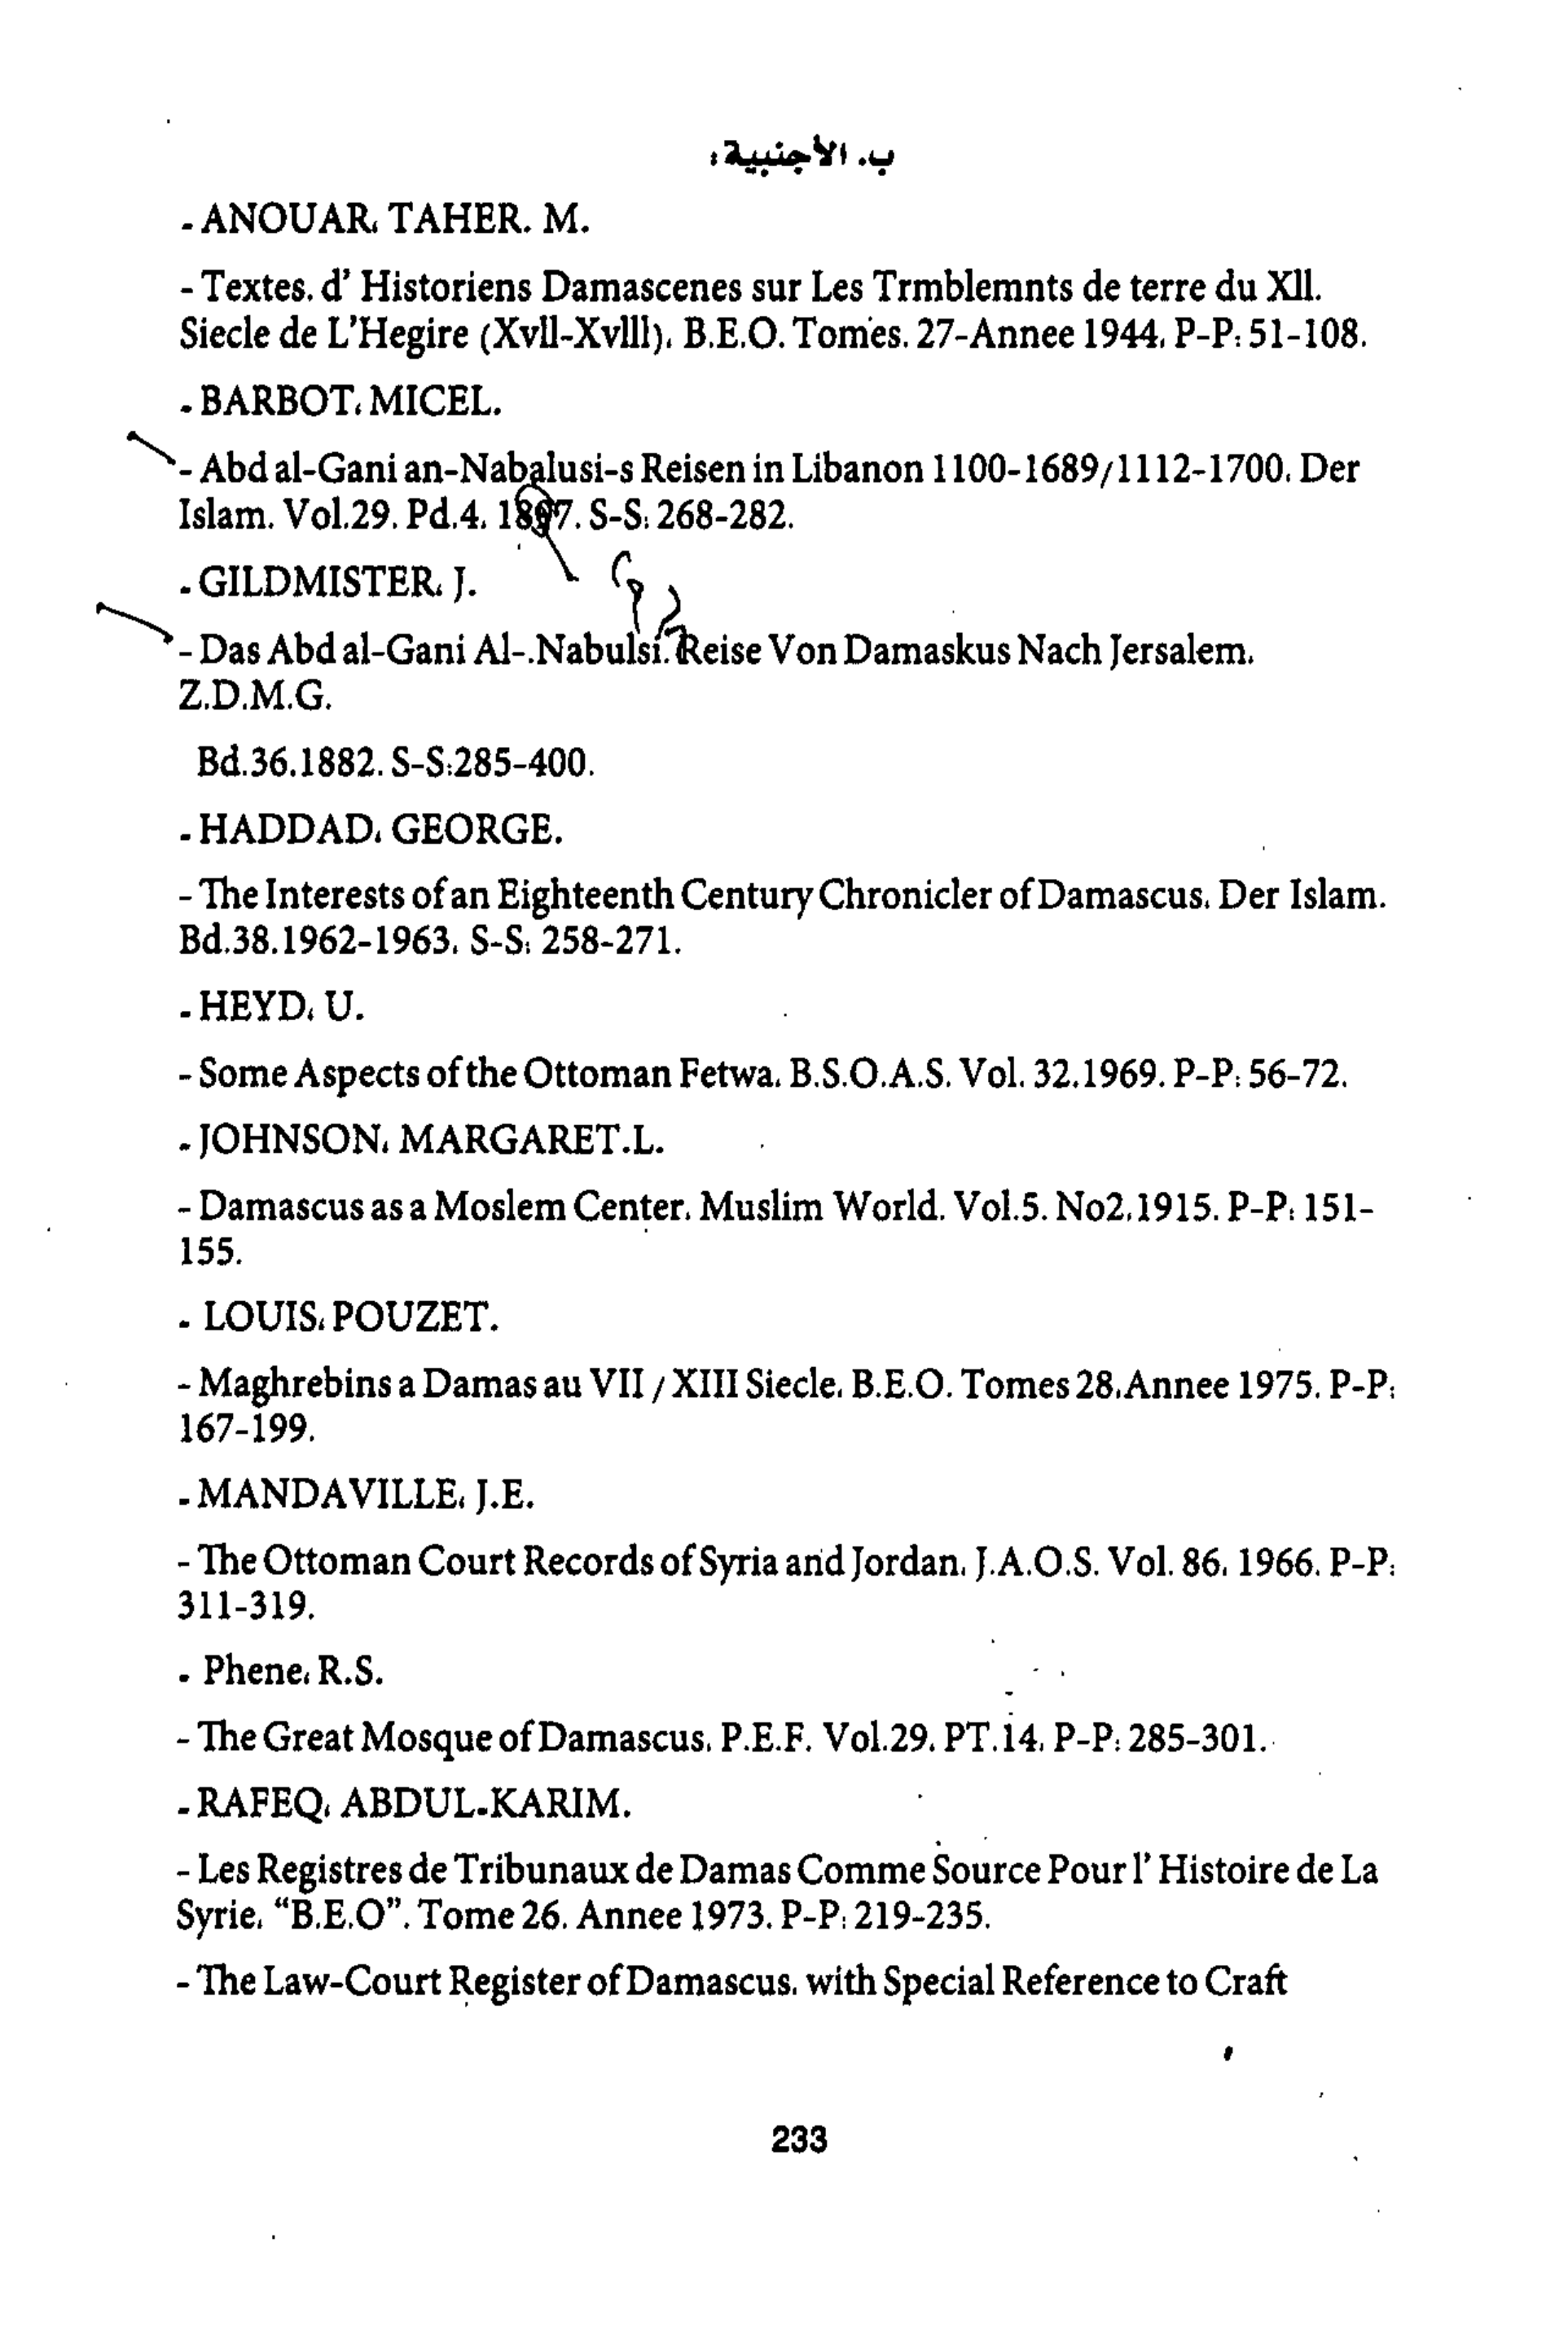 ب. الأجنبية:
- ANOUAR، TAHER. M.
- Textes. d' Historiens Damascenes sur Les Trmblemnts de terre du Xll.
Siecle de L'Hegire (Xvll-Xvlll)، B.E.O. Tomes. 27-Annee 1944، P-P: 51-108.
- BARBOT، MICEL.
- Abd al-Gani an-Nabalusi-s Reisen in Libanon 1100-1689/1112-1700، Der
Islam. Vol.29. Pd.4، 1897. S-S: 268-282.
- GILDMISTER، J.
- Das Abd al-Gani Al-.Nabulsi. Reise Von Damaskus Nach Jersalem،
Z.D.M.G.
Bd.36.1882. S-S:285-400.
- HADDAD، GEORGE.
- The Interests of an Eighteenth Century Chronicler of Damascus، Der Islam.
Bd.38.1962-1963، S-S: 258-271.
- HEYD، U.
- Some Aspects of the Ottoman Fetwa، B.S.O.A.S. Vol. 32.1969. P-P: 56-72.
- JOHNSON، MARGARET.L.
- Damascus as a Moslem Center، Muslim World. Vol.5. No2،1915. P-P: 151-
155.
- LOUIS، POUZET.
- Maghrebins a Damas au VII / XIII Siecle، B.E.O. Tomes 28،Annee 1975. P-P:
167-199.
- MANDAVILLE، J.E.
- The Ottoman Court Records of Syria and Jordan، J.A.O.S. Vol. 86، 1966. P-P:
311-319.
- Phene، R.S.
- The Great Mosque of Damascus، P.E.F. Vol.29، PT.14، P-P: 285-301.
- RAFEQ، ABDUL-KARIM.
- Les Registres de Tribunaux de Damas Comme Source Pour l' Histoire de La
Syrie، "B.E.O". Tome 26. Annee 1973. P-P: 219-235.
- The Law-Court Register of Damascus، with Special Reference to Craft
233